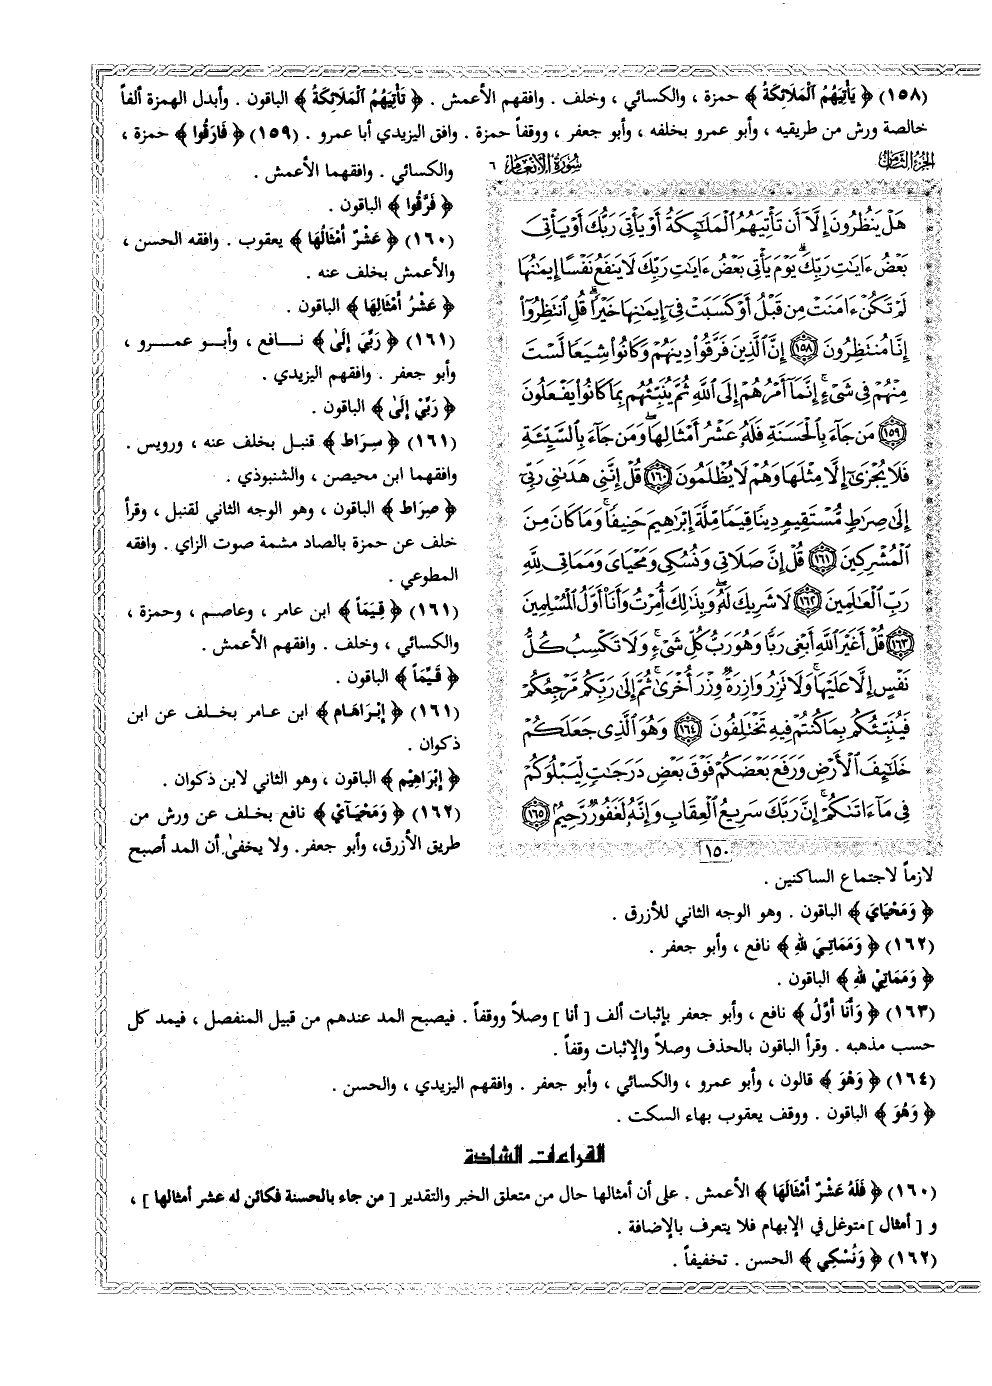 (١٥٨) ﴿ يَأْتِيَهُمُ الْمَلَائِكَةُ ﴾ حمزة ، والكسائي ، وخلف . وافقهم الأعمش . ﴿ تَأْتِيَهُمُ الْمَلَائِكَةُ ﴾ الباقون . وأبدل الهمزة ألفاً
خالصة ورش من طريقيه ، وأبو عمرو بخلفه ، وأبو جعفر ، ووقفاً حمزة . وافق اليزيدي أبا عمرو . (١٥٩) ﴿ فَارَقُوا ﴾ حمزة ،
والكسائي . وافقهما الأعمش .
﴿ فَرَّقُوا ﴾ الباقون .
(١٦٠) ﴿ عَشْرٌ أَمْثَالُهَا ﴾ يعقوب . وافقه الحسن ،
والأعمش بخلف عنه .
﴿ عَشْرُ أَمْثَالِهَا ﴾ الباقون .
(١٦١) ﴿ رَبِّيَ إِلَىٰ ﴾ نافع ، وأبو عمرو ،
وأبو جعفر . وافقهم اليزيدي .
﴿ رَبِّيْ إِلَىٰ ﴾ الباقون .
(١٦١) ﴿ سِرَاط ﴾ قنبل بخلف عنه ، ورويس .
وافقهما ابن محيصن ، والشنبوذي .
﴿ صِرَاط ﴾ الباقون ، وهو الوجه الثاني لقنبل ، وقرأ
خلف عن حمزة بالصاد مشمة صوت الزاي . وافقه
المطوعي .
(١٦١) ﴿ قِيَماً ﴾ ابن عامر ، وعاصم ، وحمزة ،
والكسائي ، وخلف . وافقهم الأعمش .
﴿ قَيِّماً ﴾ الباقون .
(١٦١) ﴿ إبْرَاهَام ﴾ ابن عامر بخلف عن ابن
ذكوان .
﴿ إبْرَاهِيْم ﴾ الباقون ، وهو الثاني لابن ذكوان .
(١٦٢) ﴿ وَمَحْيَآيْ ﴾ نافع بخلف عن ورش من
طريق الأزرق، وأبو جعفر. ولا يخفىٰ أن المد أصبح
الجزء الثامن
سورة الأنعام ٦
هَلْ يَنظُرُونَ إِلَّآ أَن تَأْتِيَهُمُ ٱلْمَلَٰٓئِكَةُ أَوْ يَأْتِىَ رَبُّكَ أَوْ يَأْتِىَ
بَعْضُ ءَايَٰتِ رَبِّكَ ۗ يَوْمَ يَأْتِى بَعْضُ ءَايَٰتِ رَبِّكَ لَا يَنفَعُ نَفْسًا إِيمَٰنُهَا
لَمْ تَكُنْ ءَامَنَتْ مِن قَبْلُ أَوْ كَسَبَتْ فِىٓ إِيمَٰنِهَا خَيْرًا ۗ قُلِ ٱنتَظِرُوٓا۟
إِنَّا مُنتَظِرُونَ ١٥٨ إِنَّ ٱلَّذِينَ فَرَّقُوا۟ دِينَهُمْ وَكَانُوا۟ شِيَعًا لَّسْتَ
مِنْهُمْ فِى شَىْءٍ ۚ إِنَّمَآ أَمْرُهُمْ إِلَى ٱللَّهِ ثُمَّ يُنَبِّئُهُم بِمَا كَانُوا۟ يَفْعَلُونَ
١٥٩ مَن جَآءَ بِٱلْحَسَنَةِ فَلَهُۥ عَشْرُ أَمْثَالِهَا ۖ وَمَن جَآءَ بِٱلسَّيِّئَةِ
فَلَا يُجْزَىٰٓ إِلَّا مِثْلَهَا وَهُمْ لَا يُظْلَمُونَ ١٦٠ قُلْ إِنَّنِى هَدَىٰنِى رَبِّىٓ
إِلَىٰ صِرَٰطٍ مُّسْتَقِيمٍ دِينًا قِيَمًا مِّلَّةَ إِبْرَٰهِيمَ حَنِيفًا ۚ وَمَا كَانَ مِنَ
ٱلْمُشْرِكِينَ ١٦١ قُلْ إِنَّ صَلَاتِى وَنُسُكِى وَمَحْيَاىَ وَمَمَاتِى لِلَّهِ
رَبِّ ٱلْعَٰلَمِينَ ١٦٢ لَا شَرِيكَ لَهُۥ ۖ وَبِذَٰلِكَ أُمِرْتُ وَأَنَا۠ أَوَّلُ ٱلْمُسْلِمِينَ
١٦٣ قُلْ أَغَيْرَ ٱللَّهِ أَبْغِى رَبًّا وَهُوَ رَبُّ كُلِّ شَىْءٍ ۚ وَلَا تَكْسِبُ كُلُّ
نَفْسٍ إِلَّا عَلَيْهَا ۚ وَلَا تَزِرُ وَازِرَةٌ وِزْرَ أُخْرَىٰ ۚ ثُمَّ إِلَىٰ رَبِّكُم مَّرْجِعُكُمْ
فَيُنَبِّئُكُم بِمَا كُنتُمْ فِيهِ تَخْتَلِفُونَ ١٦٤ وَهُوَ ٱلَّذِى جَعَلَكُمْ
خَلَٰٓئِفَ ٱلْأَرْضِ وَرَفَعَ بَعْضَكُمْ فَوْقَ بَعْضٍ دَرَجَٰتٍ لِّيَبْلُوَكُمْ
فِى مَآ ءَاتَىٰكُمْ ۗ إِنَّ رَبَّكَ سَرِيعُ ٱلْعِقَابِ وَإِنَّهُۥ لَغَفُورٌ رَّحِيمٌۢ ١٦٥
١٥٠
لازماً لاجتماع الساكنين .
﴿ وَمَحْيَايَ ﴾ الباقون . وهو الوجه الثاني للأزرق .
(١٦٢) ﴿ وَمَمَاتِيَ لله ﴾ نافع ، وأبو جعفر .
﴿ وَمَمَاتِيْ لله ﴾ الباقون .
(١٦٣) ﴿ وَأَنَا أَوَّلُ ﴾ نافع ، وأبو جعفر بإثبات ألف [ أنا ] وصلاً ووقفاً . فيصبح المد عندهم من قبيل المنفصل ، فيمد كل
حسب مذهبه . وقرأ الباقون بالحذف وصلاً والإثبات وقفاً .
(١٦٤) ﴿ وَهْوَ ﴾ قالون ، وأبو عمرو ، والكسائي ، وأبو جعفر . وافقهم اليزيدي ، والحسن .
﴿ وَهُوَ ﴾ الباقون . ووقف يعقوب بهاء السكت .
القراءات الشاذة
(١٦٠) ﴿ فَلَهُ عَشْرٌ أَمْثَالَهَا ﴾ الأعمش . على أن أمثالها حال من متعلق الخبر والتقدير [ من جاء بالحسنة فكائن له عشر أمثالها ] ،
و [ أمثال ] متوغل في الإبهام فلا يتعرف بالإضافة .
(١٦٢) ﴿ وَنُسْكِي ﴾ الحسن . تخفيفاً .